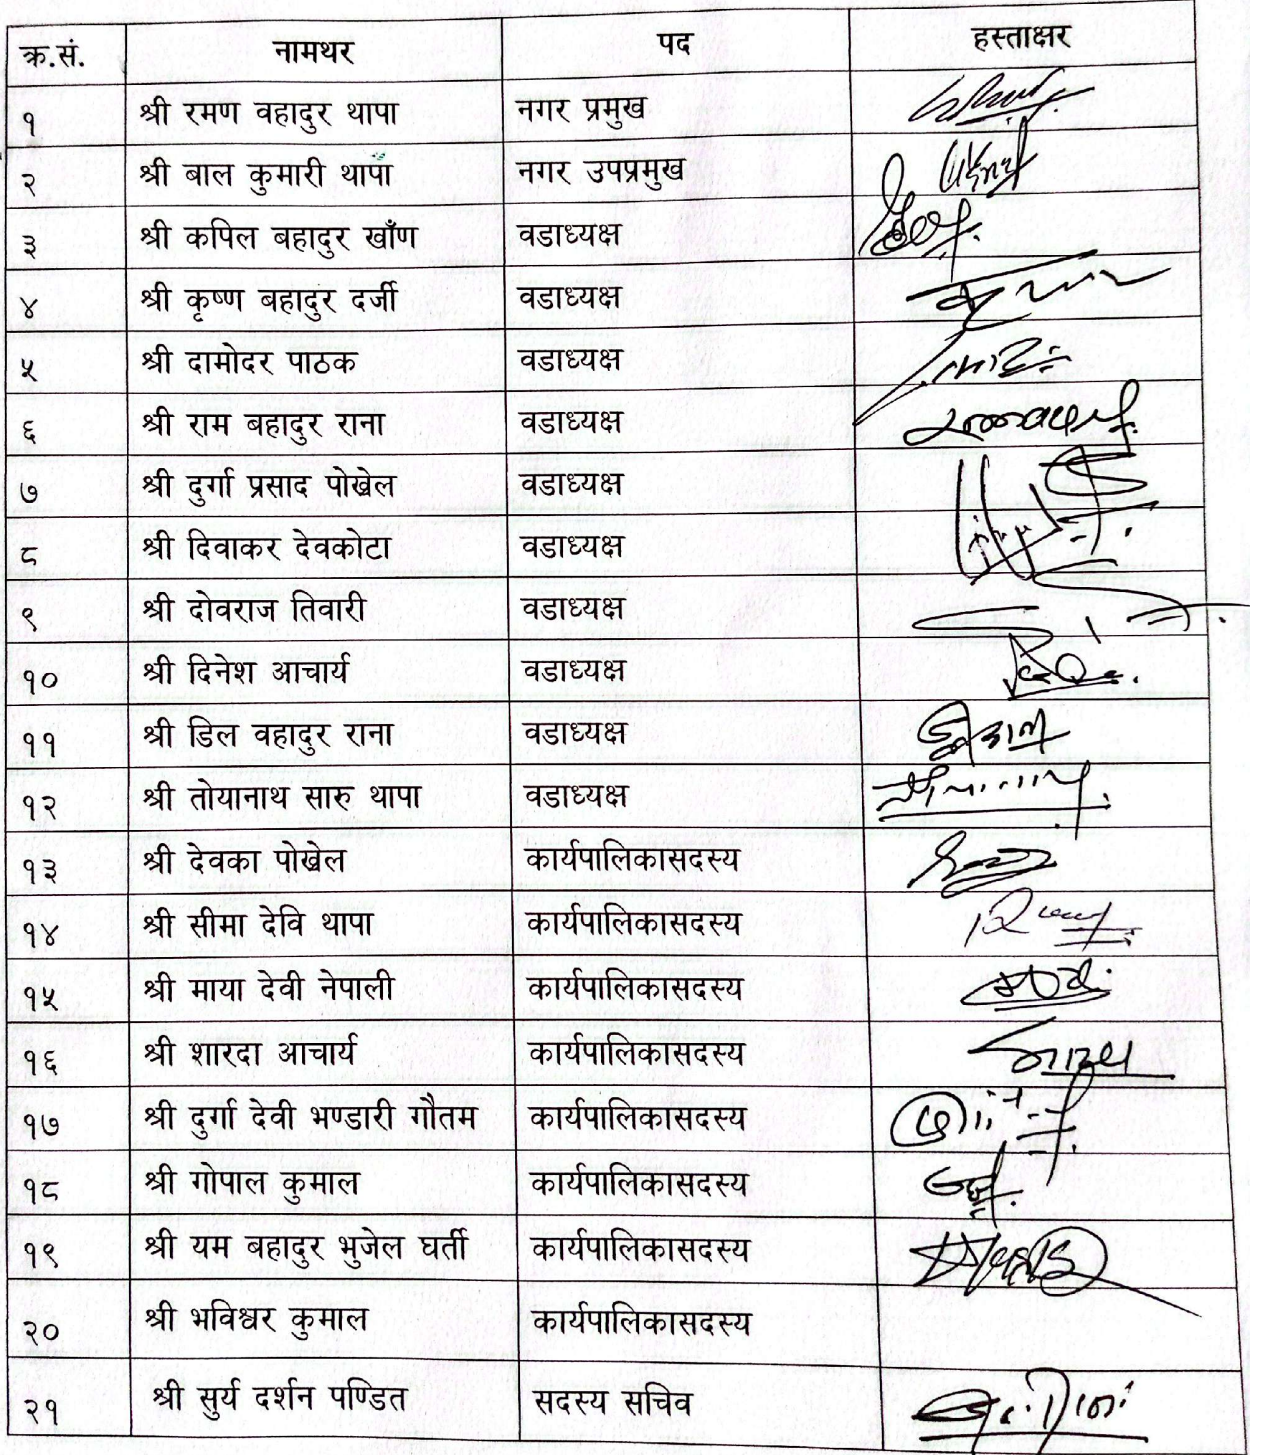 क्र.सं. नामथर पद हस्ताक्षर
१ श्री रमण वहादुर थापा नगर प्रमुख
२ श्री बाल कुमारी थापा नगर उपप्रमुख
३ श्री कपिल बहादुर खाँण वडाध्यक्ष
४ श्री कृष्ण बहादुर दर्जी वडाध्यक्ष
५ श्री दामोदर पाठक वडाध्यक्ष
६ श्री राम बहादुर राना वडाध्यक्ष
७ श्री दुर्गा प्रसाद पोखेल वडाध्यक्ष
८ श्री दिवाकर देवकोटा वडाध्यक्ष
९ श्री दोवराज तिवारी वडाध्यक्ष
१० श्री दिनेश आचार्य वडाध्यक्ष
११ श्री डिल वहादुर राना वडाध्यक्ष
१२ श्री तोयानाथ सारु थापा वडाध्यक्ष
१३ श्री देवका पोखेल कार्यपालिकासदस्य
१४ श्री सीमा देवि थापा कार्यपालिकासदस्य
१५ श्री माया देवी नेपाली कार्यपालिकासदस्य
१६ श्री शारदा आचार्य कार्यपालिकासदस्य
१७ श्री दुर्गा देवी भण्डारी गौतम कार्यपालिकासदस्य
१८ श्री गोपाल कुमाल कार्यपालिकासदस्य
१९ श्री यम बहादुर भुजेल घर्ती कार्यपालिकासदस्य
२० श्री भविश्वर कुमाल कार्यपालिकासदस्य
२१ श्री सुर्य दर्शन पण्डित सदस्य सचिव